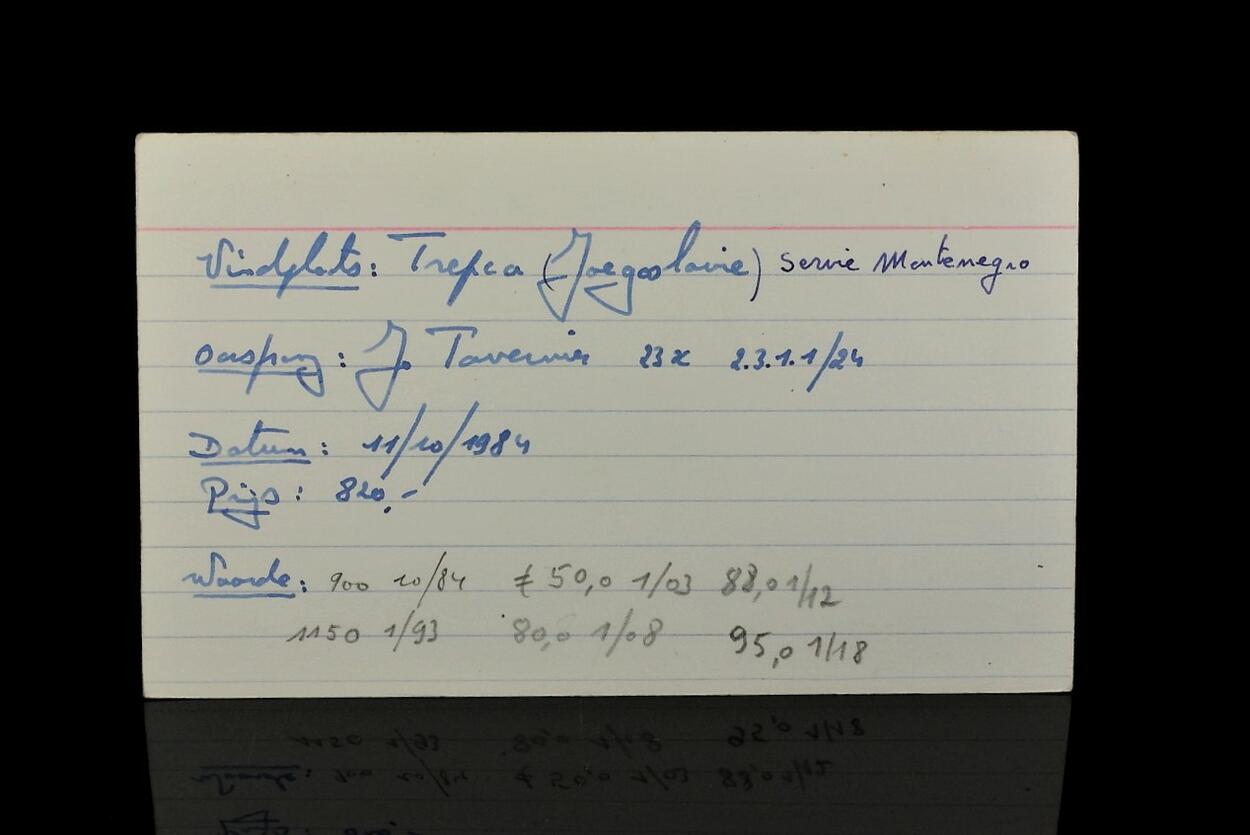 Vindplats: Trepca (Joegoslavie) Servie Montenegro
Oorsprong: J. Tavernier 23 x 2.3.1.1/24
Datum: 11/10/1984
Prijs: 820,-
Waarde: 900 10/84 € 50,0 1/03 88,0 1/12
1150 1/93 80,0 1/08 95,0 1/18